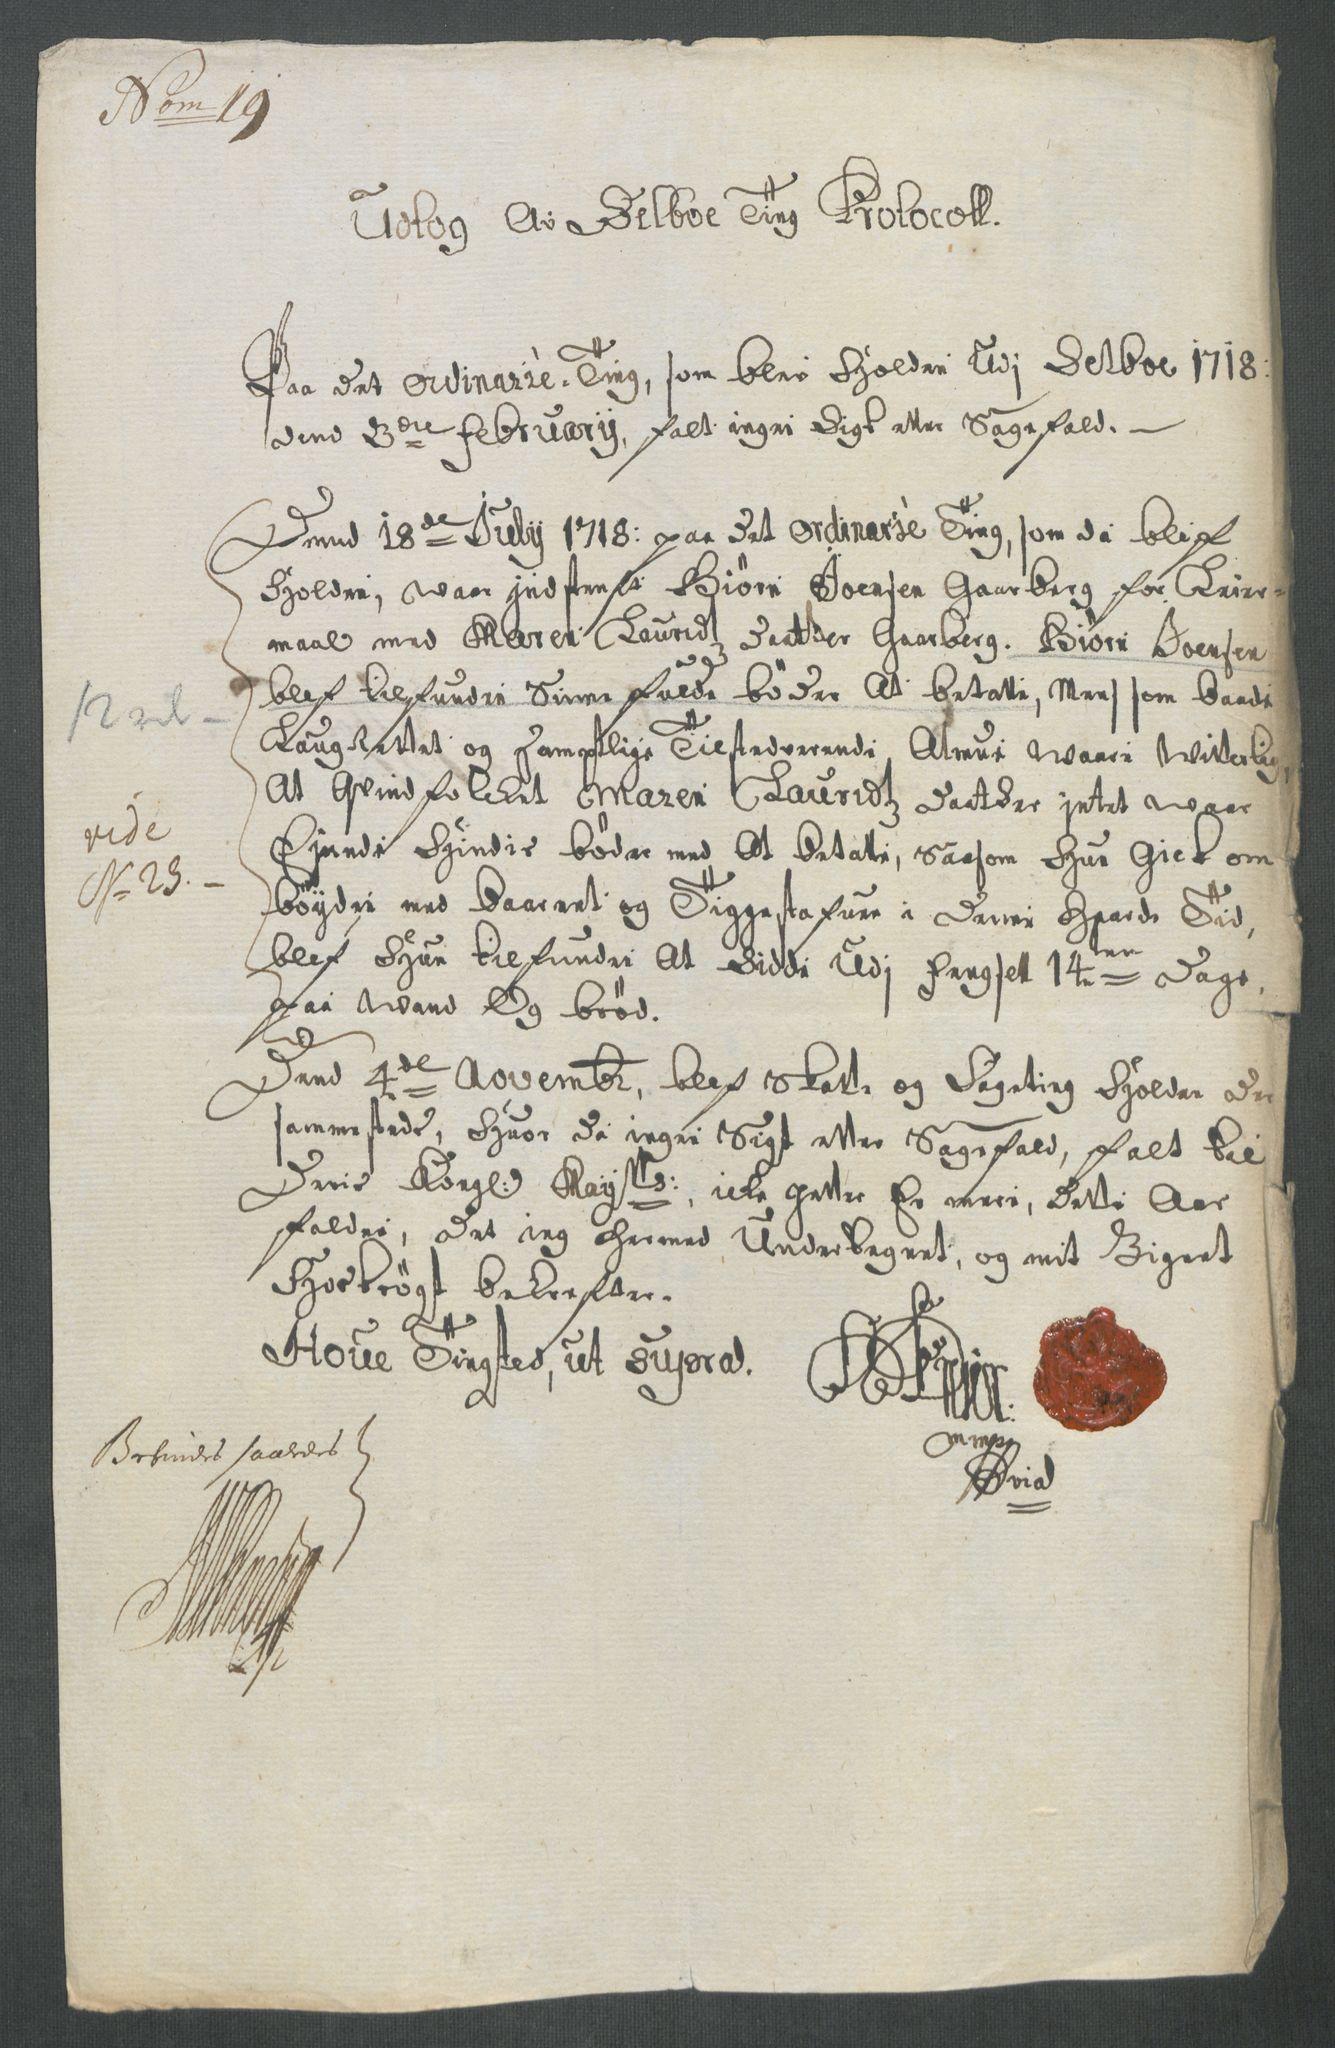 Nom 19
Udtog Av Selboe Ting Protocoll.
Paa det ordinarie Ting, som blev Holden Udj Selboe 1718:
dend 3die February, falt ingen Sigt eller Sagefald. —
Dend 18de July 1718: paa det ordinarie Ting, som da blef
Holden, waar indstenft Biörn Joensen Gaarberg for Leier-
maal med Maren Lauridtz daatter Gaarberg. Biörn Joensen
blef tilfunden Sinne fulde böder At betalle, Mens som baade
12 rd –
Laugrettet og samptlige Tilstedverende Almue waare Witterlig,
At Qvindfolchet Maren Lauridtz daatter intet waar
Ejende Hindis böder med At betalle, saasom Hun Gick om
vide
No 23. –
böyden med baarnet og Tiggestafuen i denne Haarde Tid,
blef Hun tilfunden At Sidde Udj fengsell 14ten dage,
paa Wand Og bröd.
Dend 4de Novembr, blef Skatte og Sageting Holden der
sammestede, Huor da ingen Sigt eller Sagefald, falt til
Deris Kongl: Mayts:, icke heller Er mere, dette Aar
falden, det ieg hermed Undertegnet, og mit Zignet
Hoströgt bekrefter.
Houe Tingsted, ut supra.
mmpp
Befindes saaledes